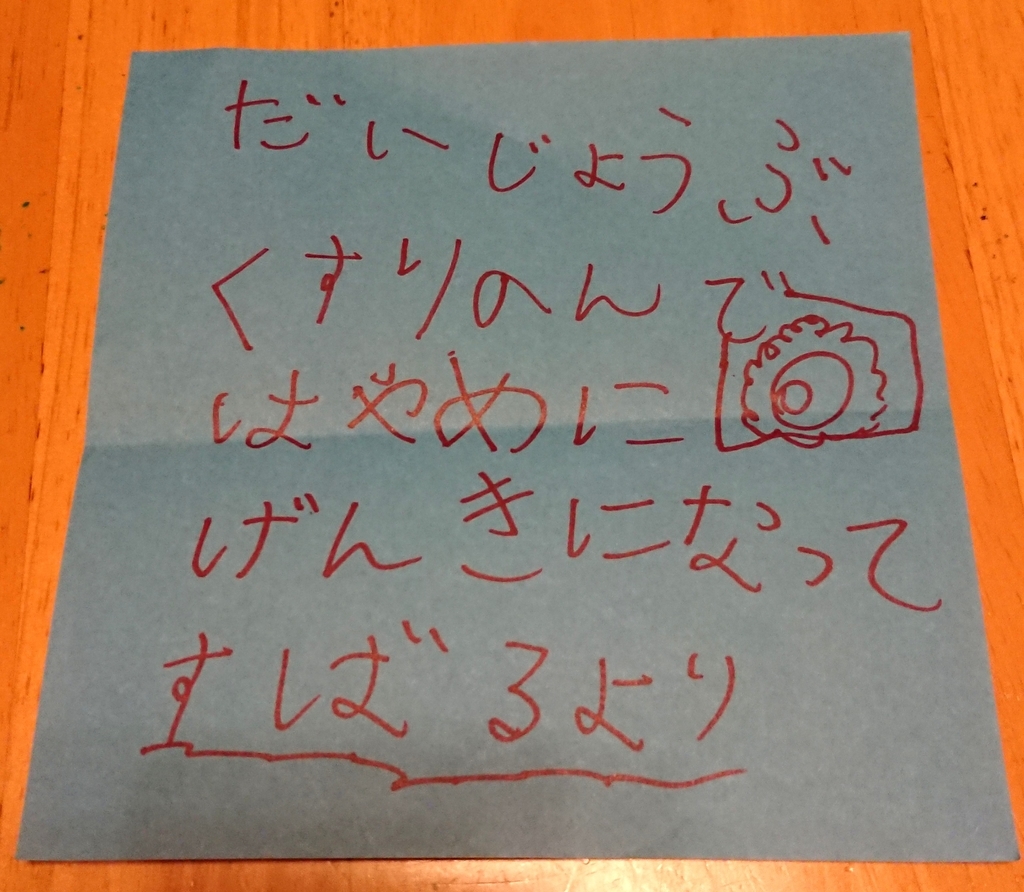 だいじょうぶ
くすりのんで
はやめに
げんきになって
すばるより